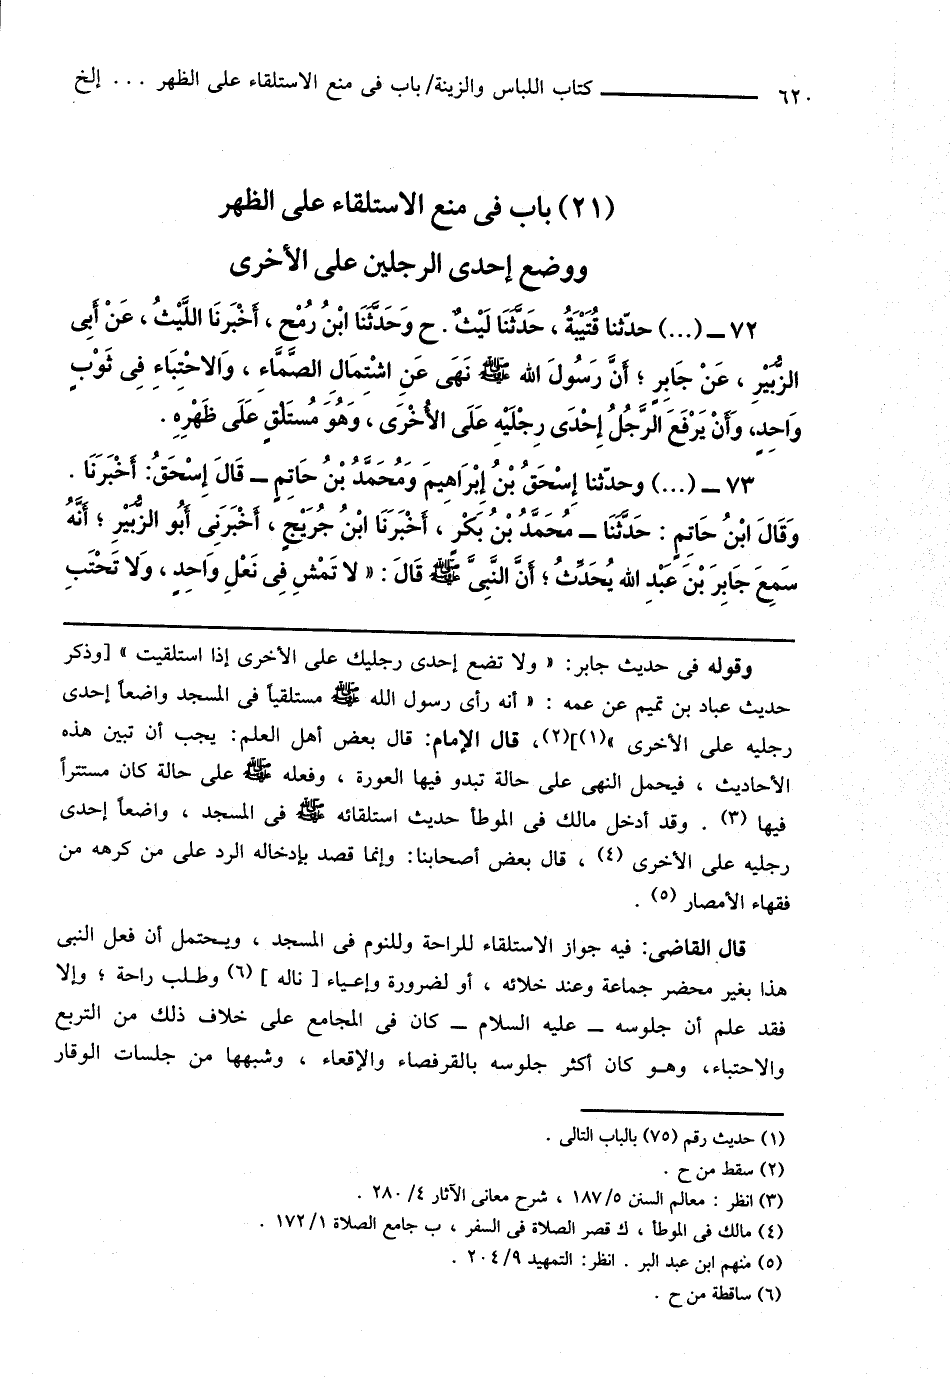 ٦٢٠ ــــــــــــ كتاب اللباس والزينة/ باب فى منع الاستلقاء على الظهر ... إلخ
(٢١) باب فى منع الاستلقاء على الظهر
ووضع إحدى الرجلين على الأخرى
٧٢ ــ (...) حدّثنا قُتَيْبَةُ ، حَدَّثَنَا لَيْثٌ . ح وَحَدَّثَنَا ابْنُ رُمْحٍ ، أَخْبَرَنَا اللَّيْثُ ، عَنْ أَبِى
الزُّبَيْرِ ، عَنْ جَابِرٍ ؛ أَنَّ رَسُولَ الله ﷺ نَهَى عَنِ اشْتِمَالِ الصَّمَّاءِ ، وَالاحْتِبَاءِ فِى ثَوْبٍ
وَاحِدٍ، وَأَنْ يَرْفَعَ الرَّجُلُ إِحْدَى رِجْلَيْهِ عَلَى الأُخْرَى ، وَهُوَ مُسْتَلْقٍ عَلَى ظَهْرِهِ .
٧٣ ــ (...) وحدّثنا إِسْحَقُ بْنُ إِبْرَاهِيمَ وَمُحَمَّدُ بْنُ حَاتِمٍ ــ قَالَ إِسْحَقُ: أَخْبَرَنَا .
وَقَالَ ابْنُ حَاتِمٍ : حَدَّثَنَا ــ مُحَمَّدُ بْنُ بَكْرٍ ، أَخْبَرَنَا ابْنُ جُرَيْجٍ ، أَخْبَرَنِى أَبُو الزُّبَيْرِ ؛ أَنَّهُ
سَمِعَ جَابِرَ بْنَ عَبْدِ الله يُحَدِّثُ ؛ أَنَّ النَّبِىَّ ﷺ قَالَ : « لا تَمْشِ فِى نَعْلٍ وَاحِدٍ ، وَلا تَحْتَبِ
وقوله فى حديث جابر: « ولا تضع إحدى رجليك على الأخرى إذا استلقيت » [وذكر
حديث عباد بن تميم عن عمه : « أنه رأى رسول الله ﷺ مستلقياً فى المسجد واضعاً إحدى
رجليه على الأخرى »(١)](٢)، قال الإمام: قال بعض أهل العلم: يجب أن تبين هذه
الأحاديث ، فيحمل النهى على حالة تبدو فيها العورة ، وفعله ﷺ على حالة كان مستتراً
فيها (٣) . وقد أدخل مالك فى الموطأ حديث استلقائه ﷺ فى المسجد ، واضعاً إحدى
رجليه على الأخرى (٤) ، قال بعض أصحابنا: وإنما قصد بإدخاله الرد على من كرهه من
فقهاء الأمصار (٥) .
قال القاضى: فيه جواز الاستلقاء للراحة وللنوم فى المسجد ، ويحتمل أن فعل النبى
هذا بغير محضر جماعة وعند خلائه ، أو لضرورة وإعياء [ ناله ] (٦) وطلب راحة ؛ وإلا
فقد علم أن جلوسه ــ عليه السلام ــ كان فى المجامع على خلاف ذلك من التربع
والاحتباء، وهو كان أكثر جلوسه بالقرفصاء والإقعاء ، وشبهها من جلسات الوقار
(١) حديث رقم (٧٥) بالباب التالى .
(٢) سقط من ح .
(٣) انظر : معالم السنن ١٨٧/٥ ، شرح معانى الآثار ٢٨٠/٤ .
(٤) مالك فى الموطأ ، ك قصر الصلاة فى السفر ، ب جامع الصلاة ١٧٢/١ .
(٥) منهم ابن عبد البر . انظر: التمهيد ٢٠٤/٩ .
(٦) ساقطة من ح .